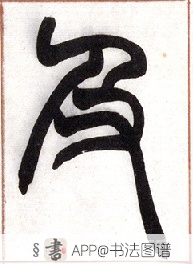 及
§ 書 APP@书法图谱